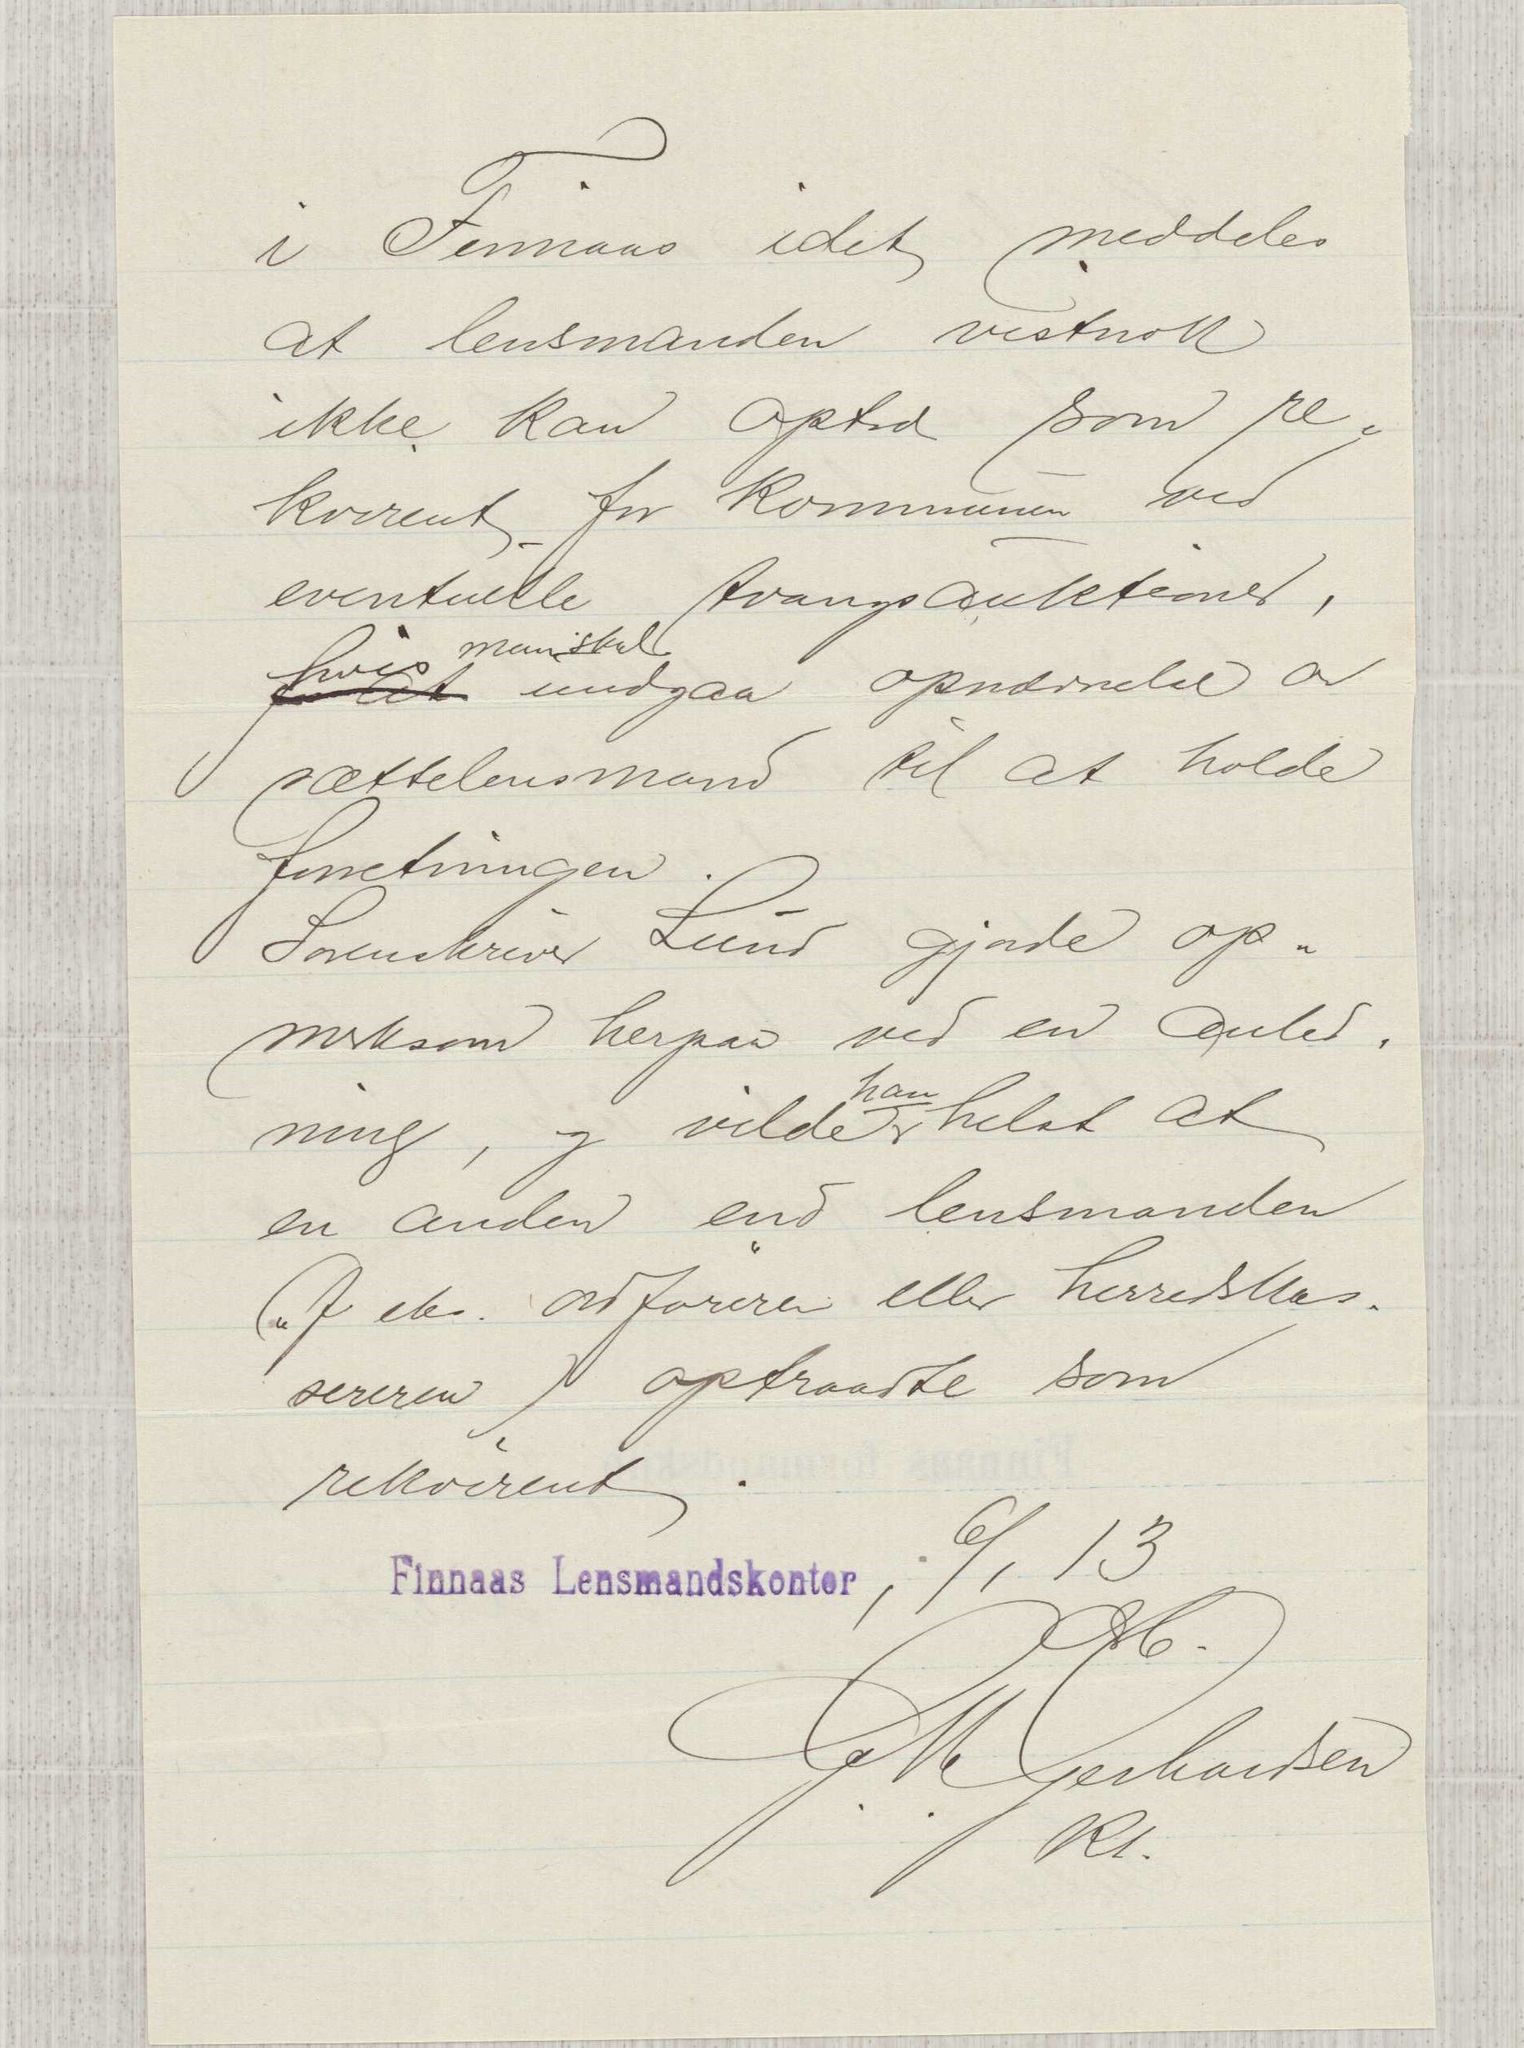 i Finnaas idet meddeles
at lensmanden vistnok
ikke kan optræ som re-
kvirent for kommunen ved
eventuelle tvangsauktioner,
hvis man skal undgaa opnævnelse av
sættelensmand til at holde
forretningen.
Sorenskriver Lund gjorde op-
merksom herpaa ved en anled-
ning, og vilde han helst at
en anden end lensmanden
(f eks. ordføreren eller herredskas-
sereren) optraadte som
rekvirent.
Finnaas Lensmandskontor, 6/1 13
G. M. Gerhardsen
Kt.